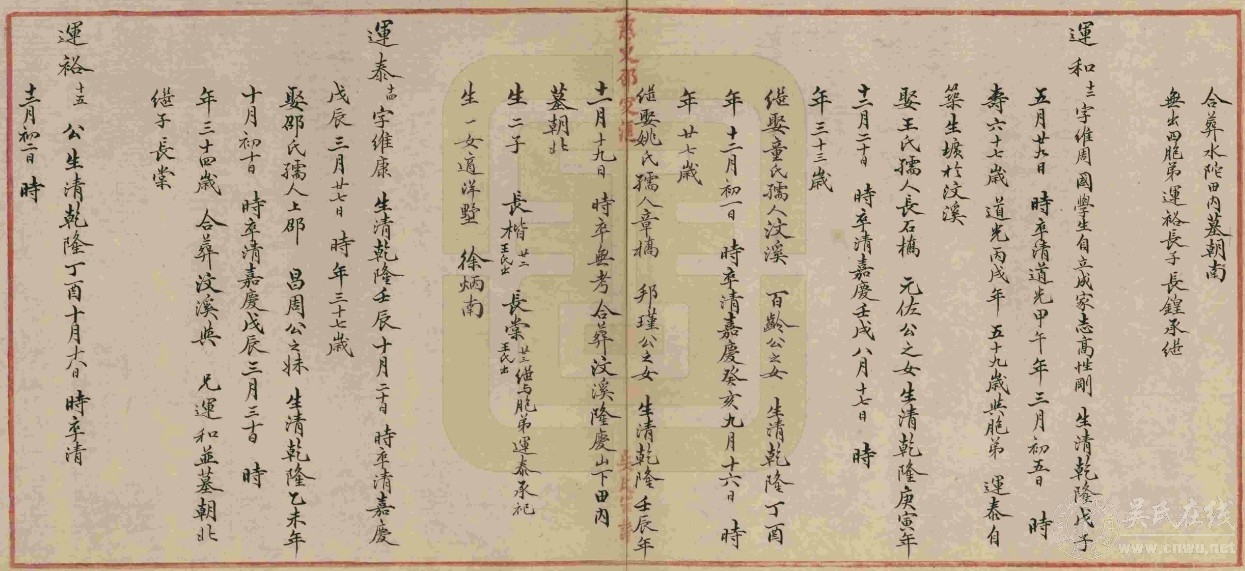 合葬水陀田内墓朝南
無出四胞弟運裕長子長鍠承継
運和 十三 字维周國學生自立成家志高性剛 生清乾隆戊子
五月廿九日 時卒清道光甲午年三月初五日 時
壽六十七歲 道光丙戌年 五十九歲與胞弟 運泰自
築生壙於汶溪
娶王氏孺人長石橋 元佐公之女生清乾隆庚寅年
十二月二十日 時卒清嘉慶壬戌八月十七日 時
年三十三歲
継娶童氏孺人汶溪 百齡公之女 生清乾隆丁酉
年十二月初一日 時卒清嘉慶癸亥九月十六日 時
年廿七歲
継娶姚氏孺人章橋 邦瑾公之女 生清乾隆壬辰年
十一月十九日 時卒無考合葬汶溪隆慶山下田内
墓朝北
生二子 長楷 廿二 王氏出 長棠 廿三 王氏出 継与胞弟運泰承祀
生一女適洋墅 徐炳南
運泰 十四 字维康 生清乾隆壬辰十月二十日 時卒清嘉慶
戊辰三月廿七日 時年三十七歲
娶邵氏孺人上邵 昌周公之妹 生清乾隆乙未年
十月初十日 時卒清嘉慶戊辰三月三十日 時
年三十四歲 合葬汶溪與 兄運和並墓朝北
継子長棠
運裕 十五 公生清乾隆丁酉十月十六日 時卒清
十二月初二日 時
吴氏在线
www.cnwu.net